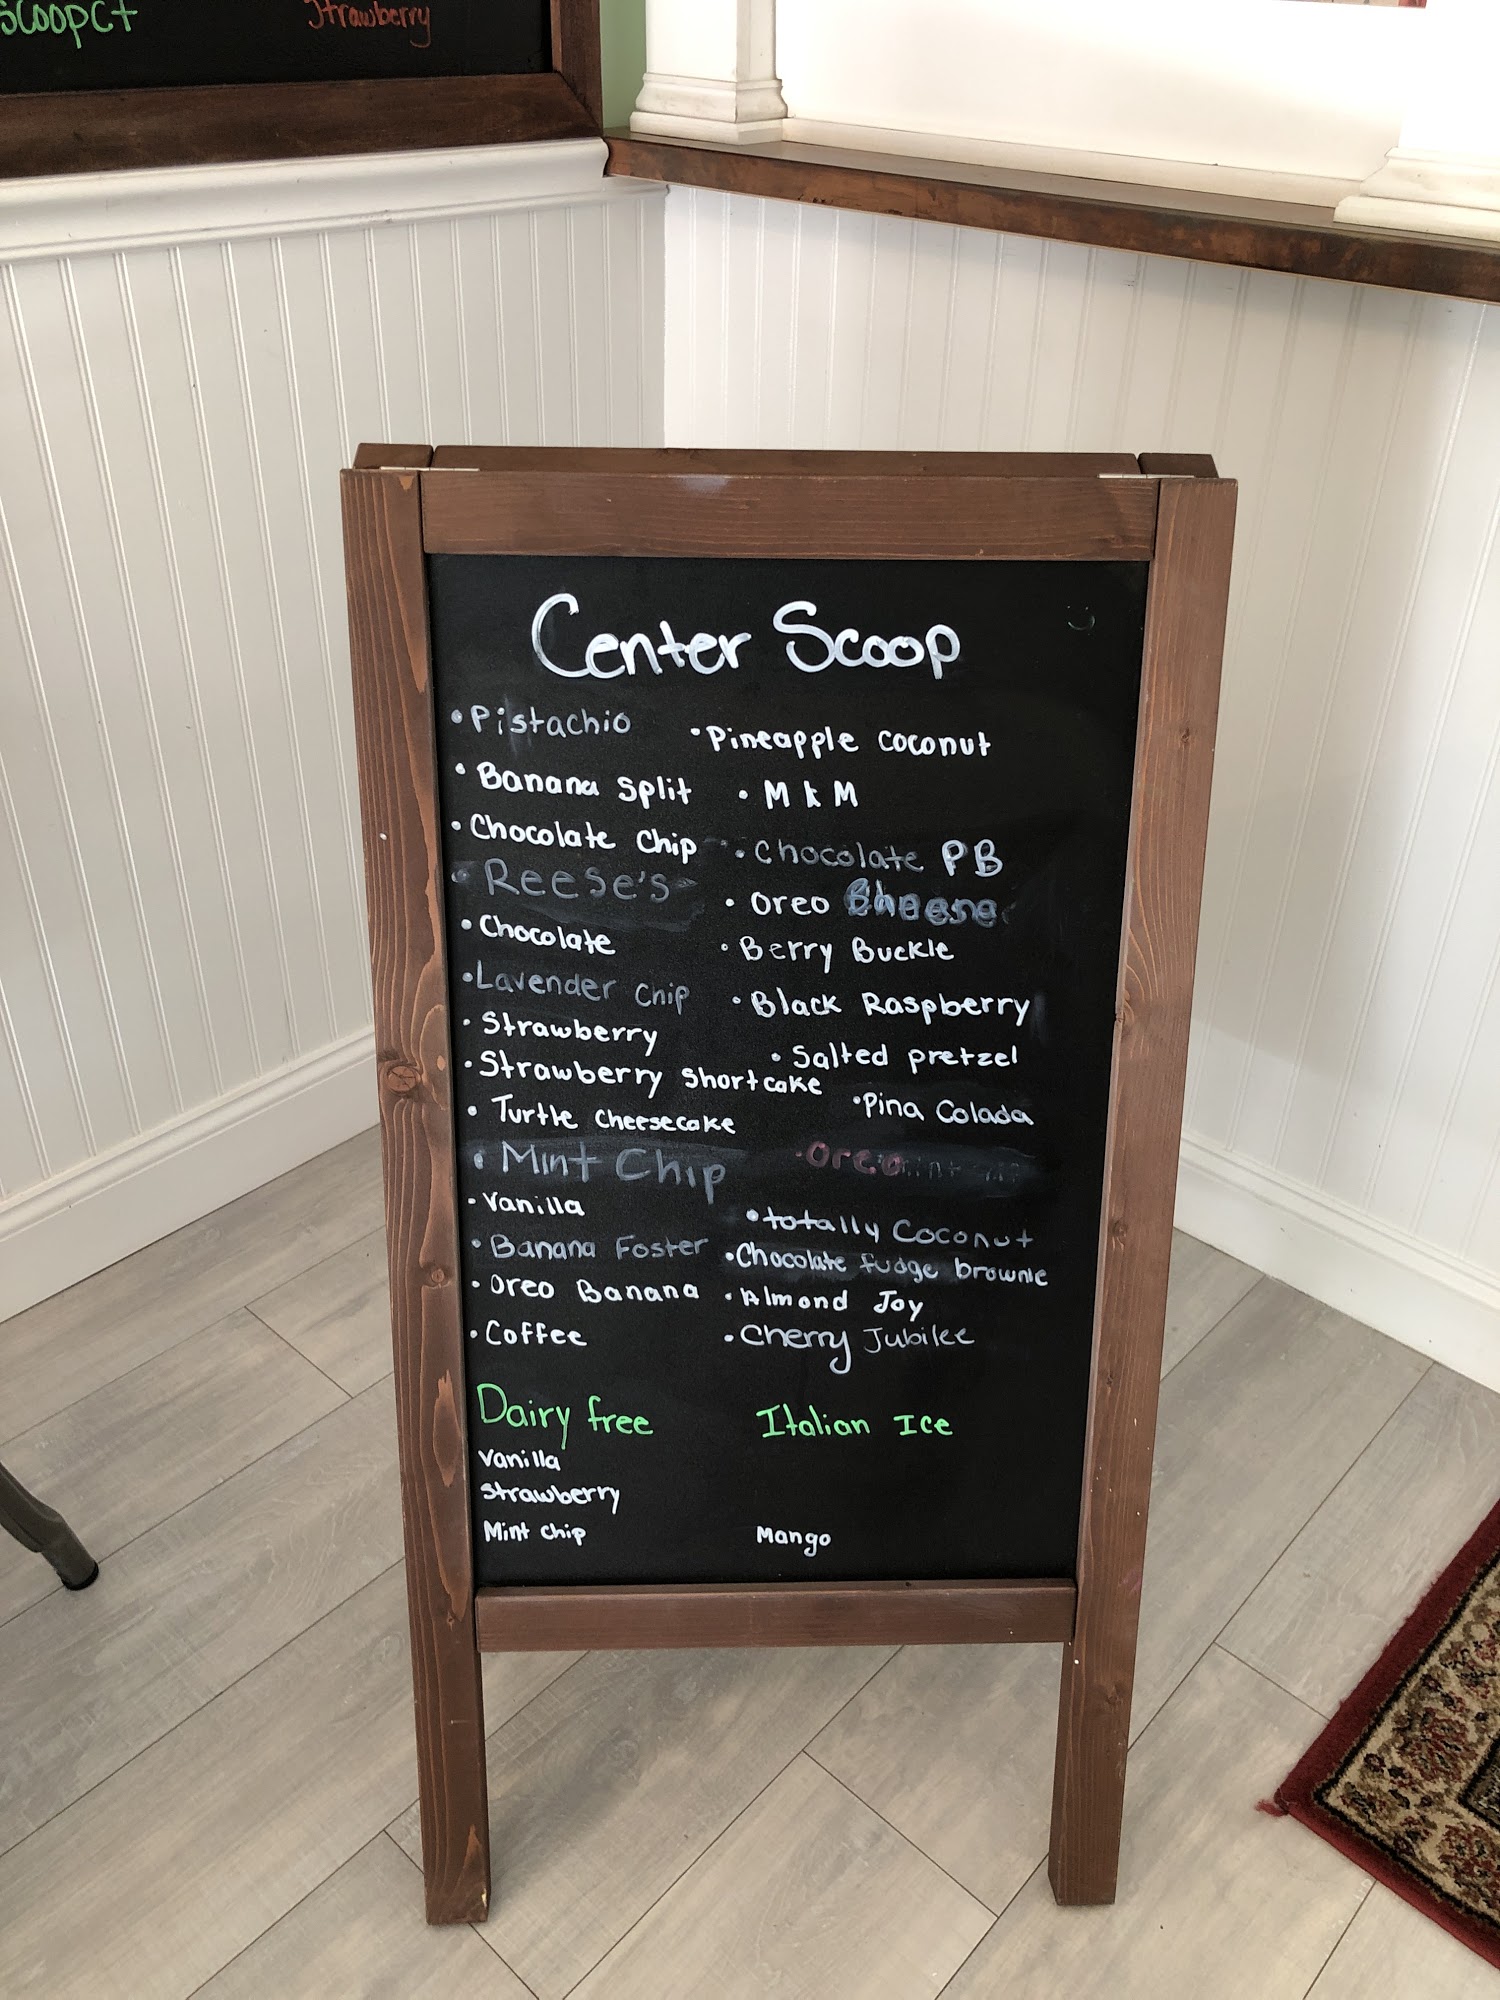 scoopct
Strawberry
Center Scoop
• Pistachio
• Banana Split
• Chocolate Chip
• Reese's
• Chocolate
• Lavender Chip
• Strawberry
• Strawberry Shortcake
• Turtle Cheesecake
• Mint Chip
• Vanilla
• Banana Foster
• Oreo Banana
• Coffee
• Pineapple Coconut
• M & M
• Chocolate PB
• Oreo
• Berry Buckle
• Black Raspberry
• Salted pretzel
• Pina Colada
• Oreo
• totally Coconut
• Chocolate fudge brownie
• Almond Joy
• Cherry Jubilee
Dairy free
Vanilla
Strawberry
Mint chip
Italian Ice
Mango